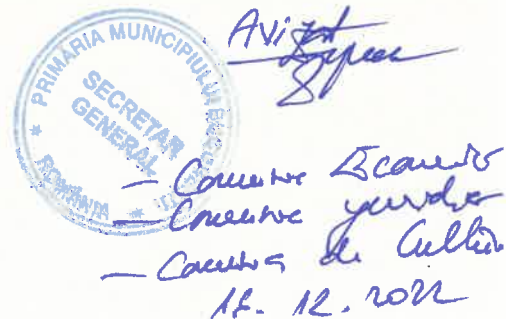 Avizat
PRIMĂRIA MUNICIPIULUI
SECRETAR
GENERAL
* ROMÂNIA *
— Comisia Economică
— Comisia juridică
— Comisia de Cultură
12. 2022